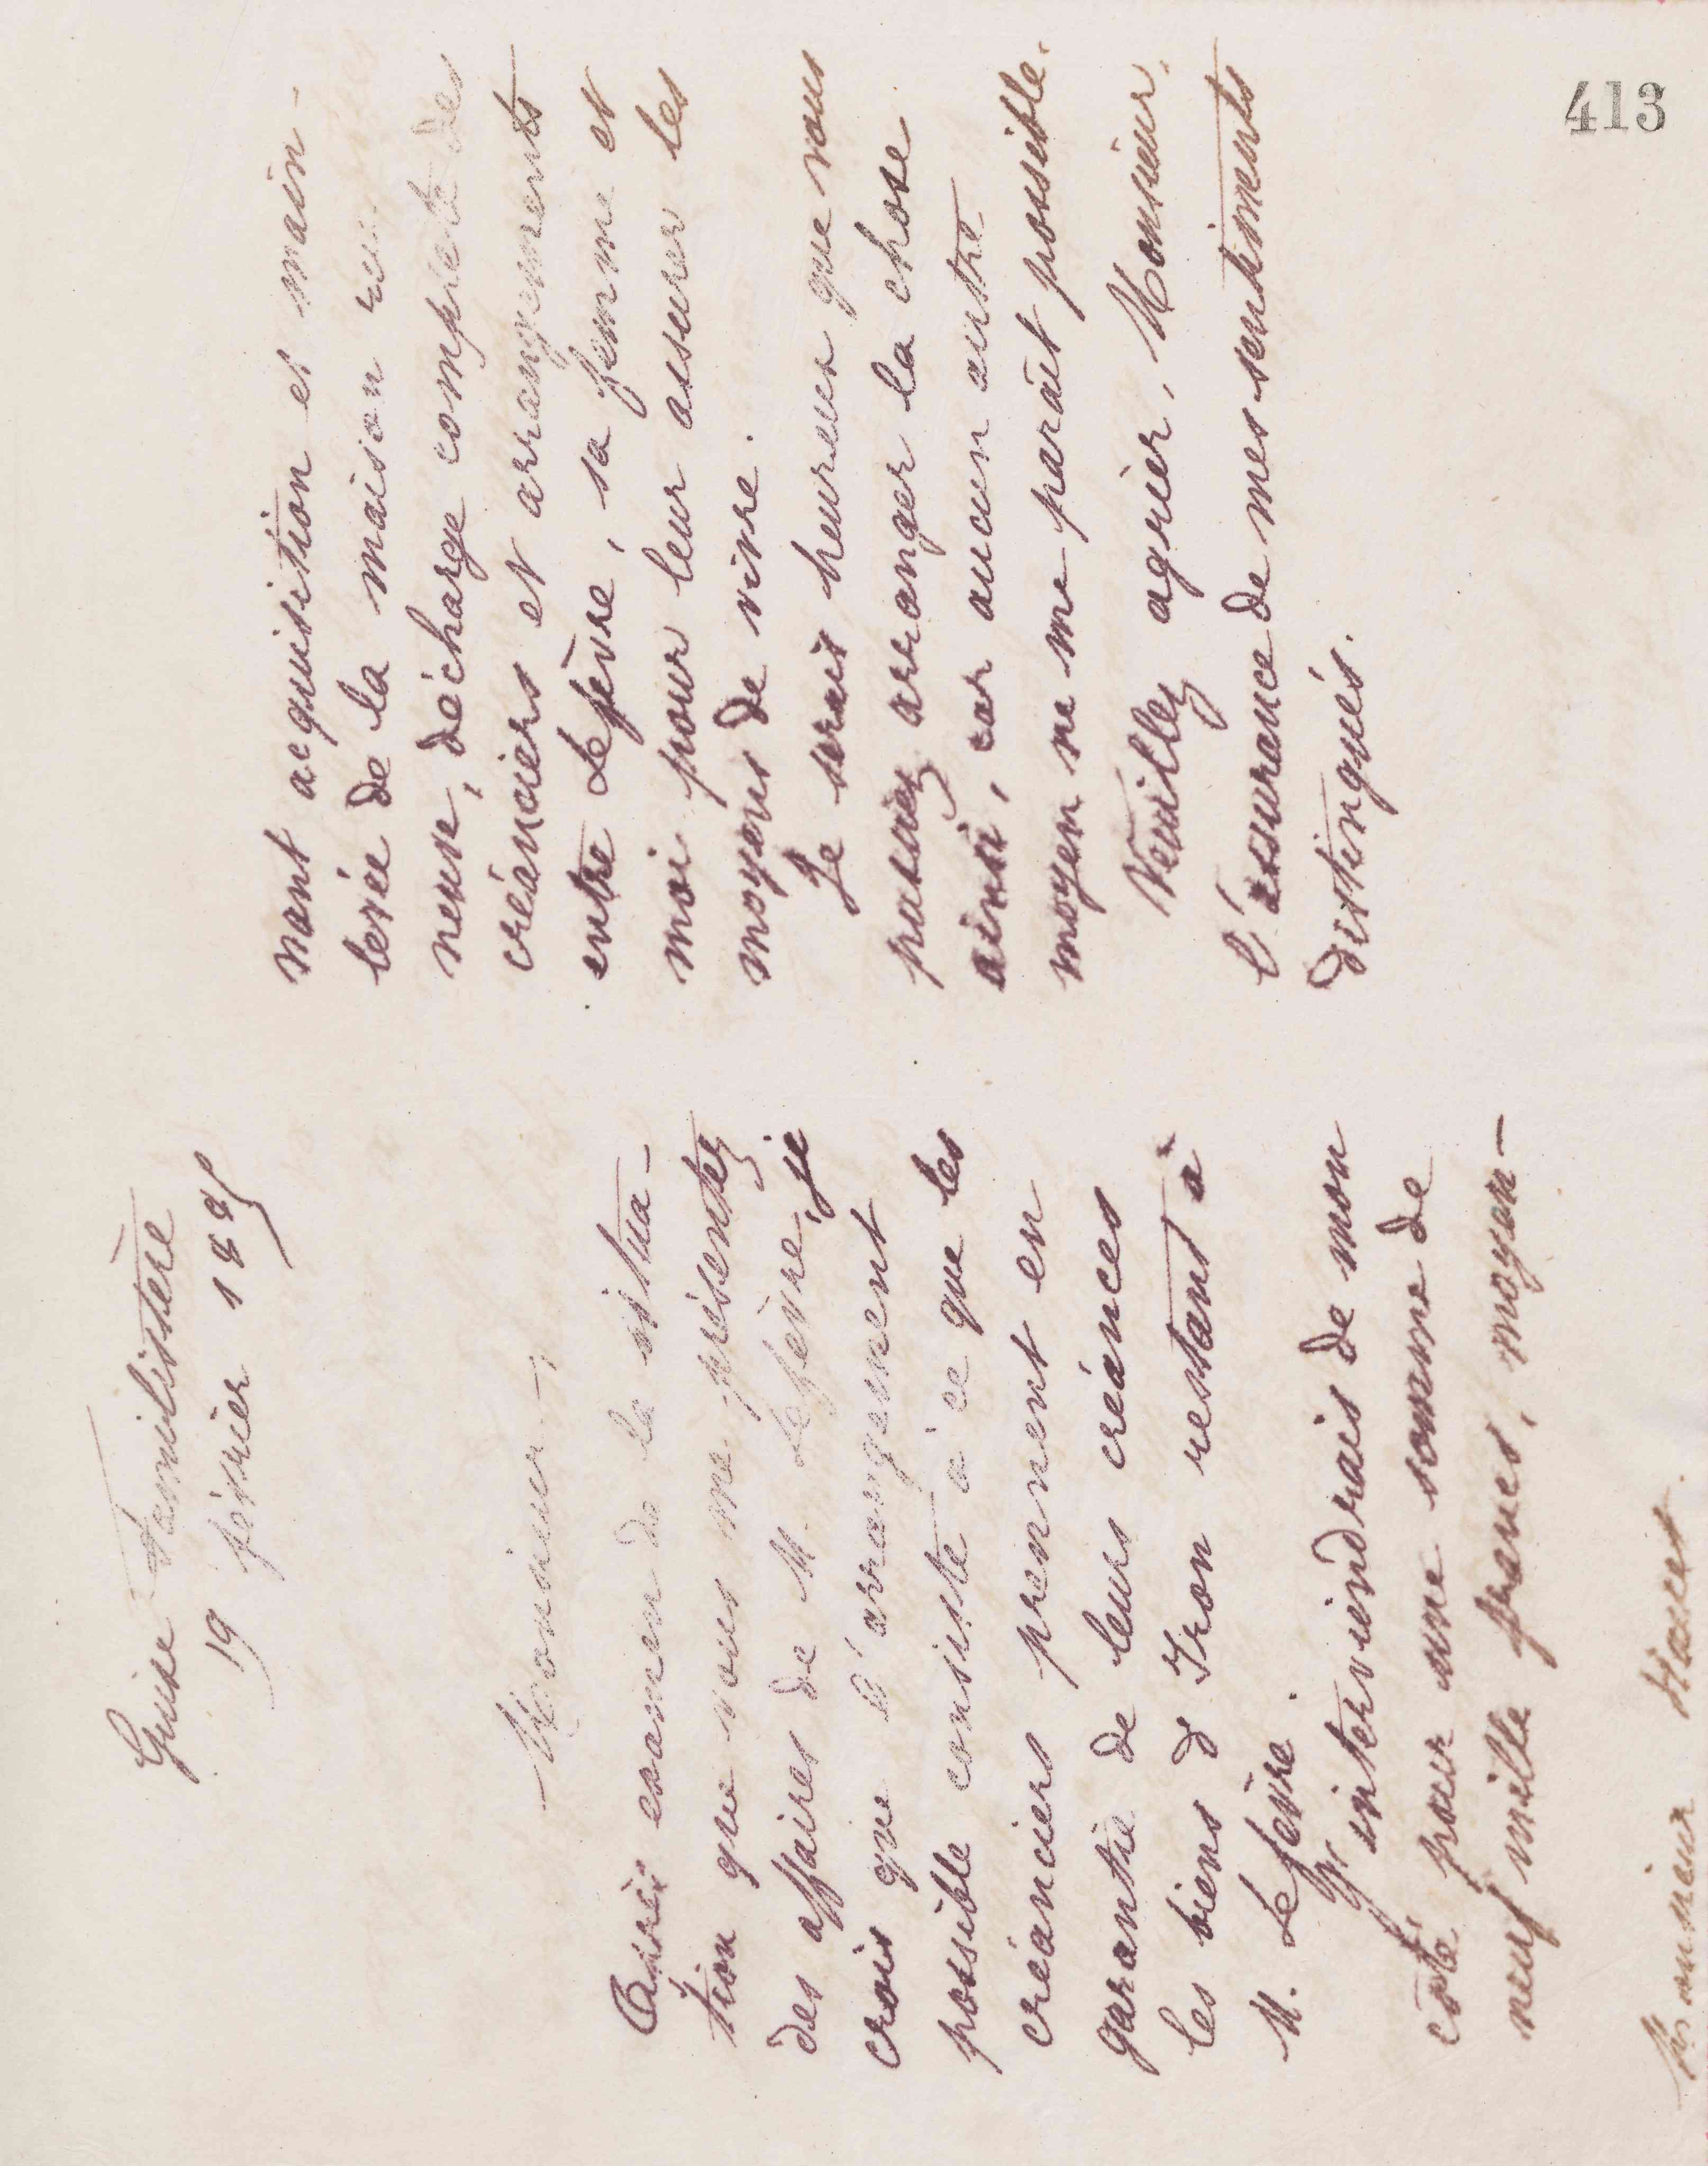 413
Guise Familistère
19 février 1895
Monsieur,
Après examen de la situa-
tion que vous me présentez
des affaires de M. Lefèvre, je
crois que l'arrangement
possible consiste à ce que les
créanciers prennent en
garantie de leurs créances
les biens d'Iron restant à
M. Lefèvre.
J'interviendrais de mon
côté pour une somme de
neuf mille francs, moyen-
Monsieur
nant acquisition et main-
levée de la maison
neuve, décharge complète des
créanciers et arrangements
entre Lefèvre, sa femme et
moi pour leur assurer les
moyens de vivre.
Je serais heureux que vous
puissiez arranger la chose
ainsi, car aucun autre
moyen ne me paraît possible.
Veuillez agréer, Monsieur,
l'assurance de mes sentiments
distingués.